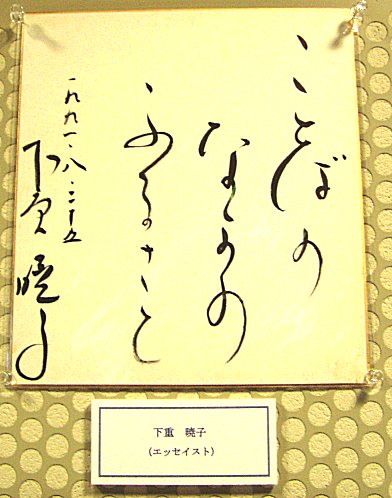 ことばの
なかの
ふるさと
一九九一・八・二十五
下重暁子
下重　暁子
（エッセイスト）